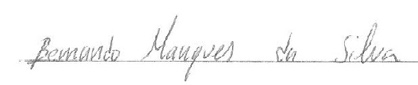 Bernando Marques da Silva